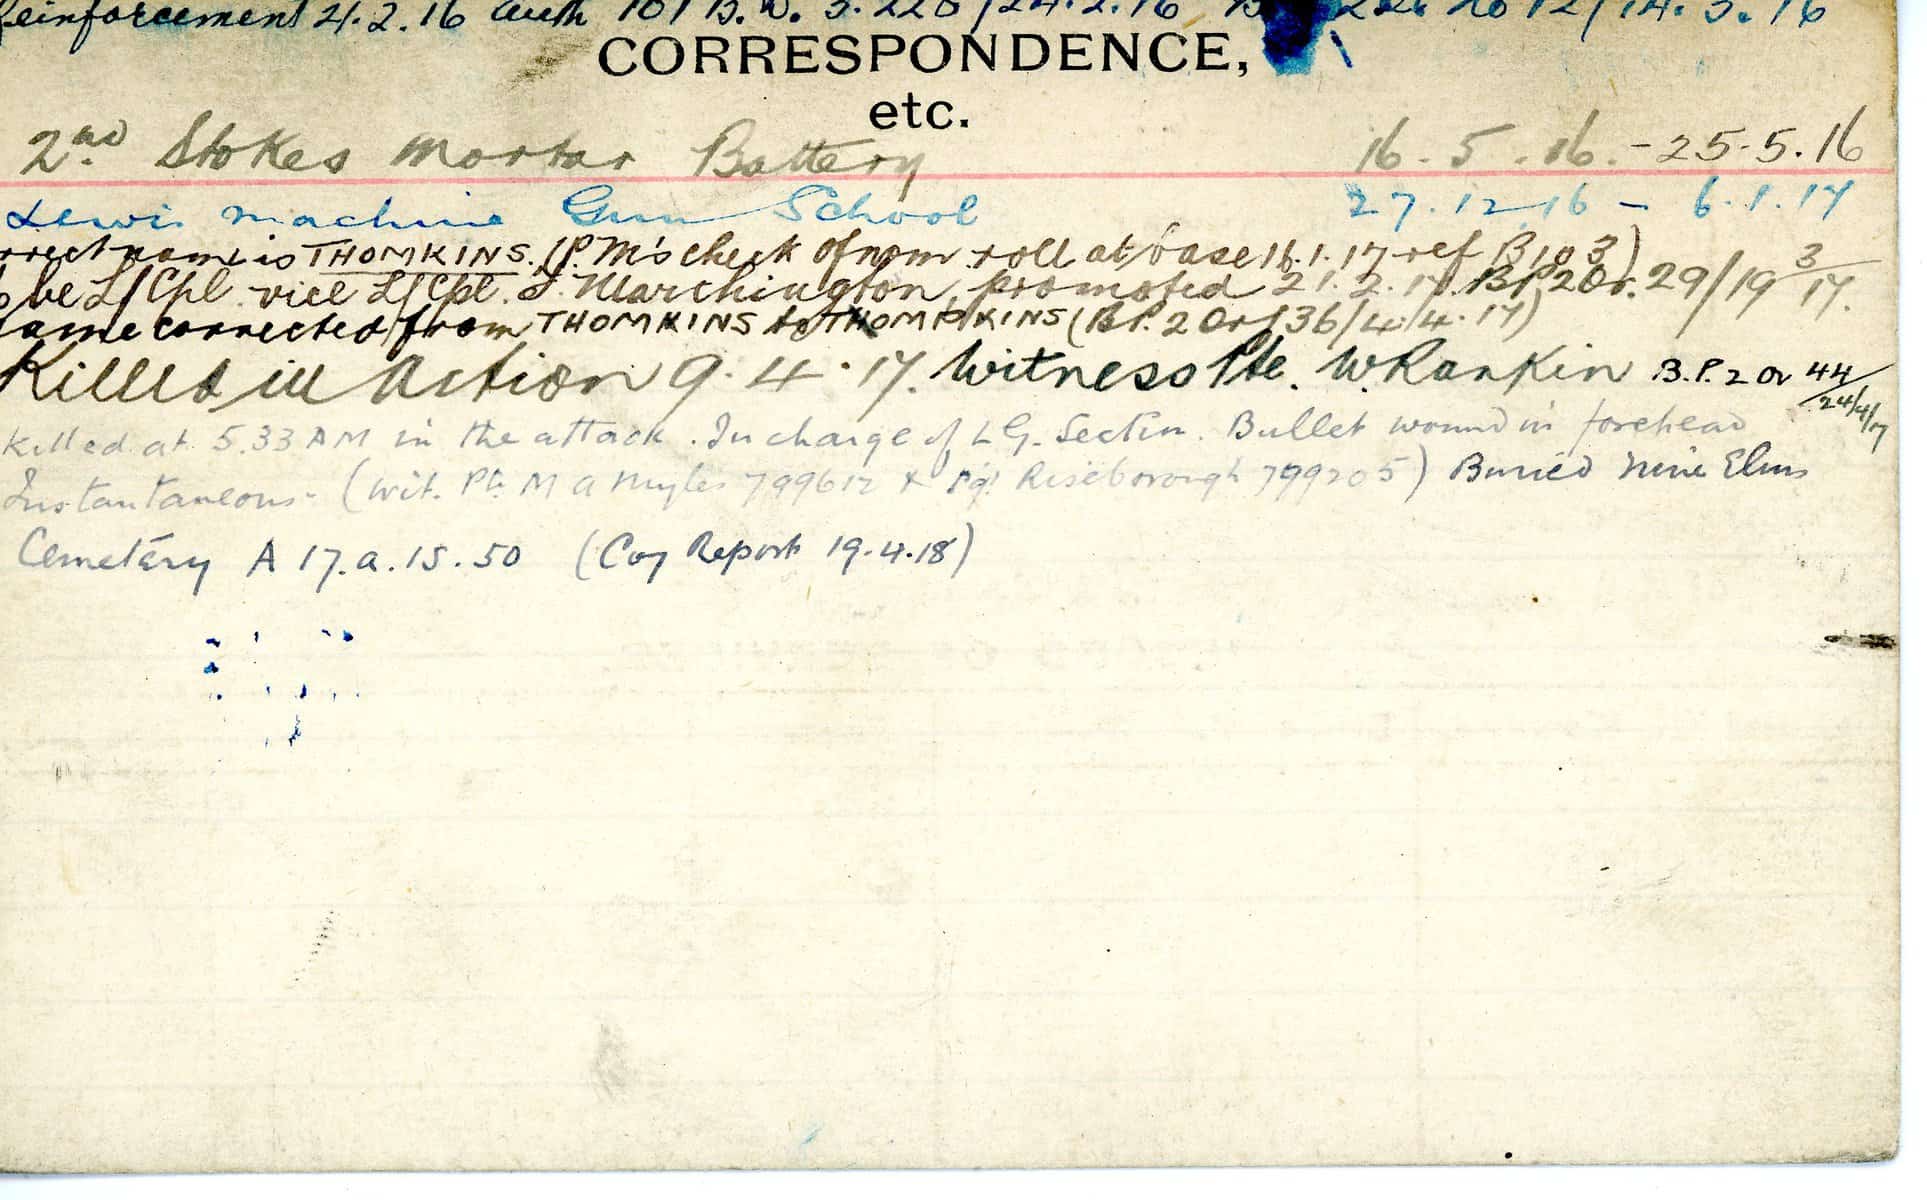 einforcement 21.2.16 Auth 101 B.W. 3.220/24.2.16 /14.3.16
CORRESPONDENCE,
etc.
2nd Stokes Mortar Battery 16.5.16.-25.5.16
Lewis Machine Gun School 27.12.16 - 6.1.17
rrect name is THOMKINS. (P.M's check of nom. roll at base 16.1.17 ref B103)
o be L/Cpl. vice L/Cpl. J. Marchington, promoted 21.2.17. B.P. 2 Or. 29/19 3/17.
ame corrected from THOMKINS to THOMPKINS (B.P. 2 Or 36/4/4.17)
Killed in Action 9.4.17. Witness Pte. W. Rankin B.P. 2 Or 44/24/4/17
Killed at 5.33 AM in the attack. In charge of L.G. Section. Bullet wound in forehead
Instantaneous - (Wit. Pte M A Myles 799612 & Riseborough 799205) Buried Nine Elms
Cemetery A 17.a.15.50 (Coy Report 19.4.18)